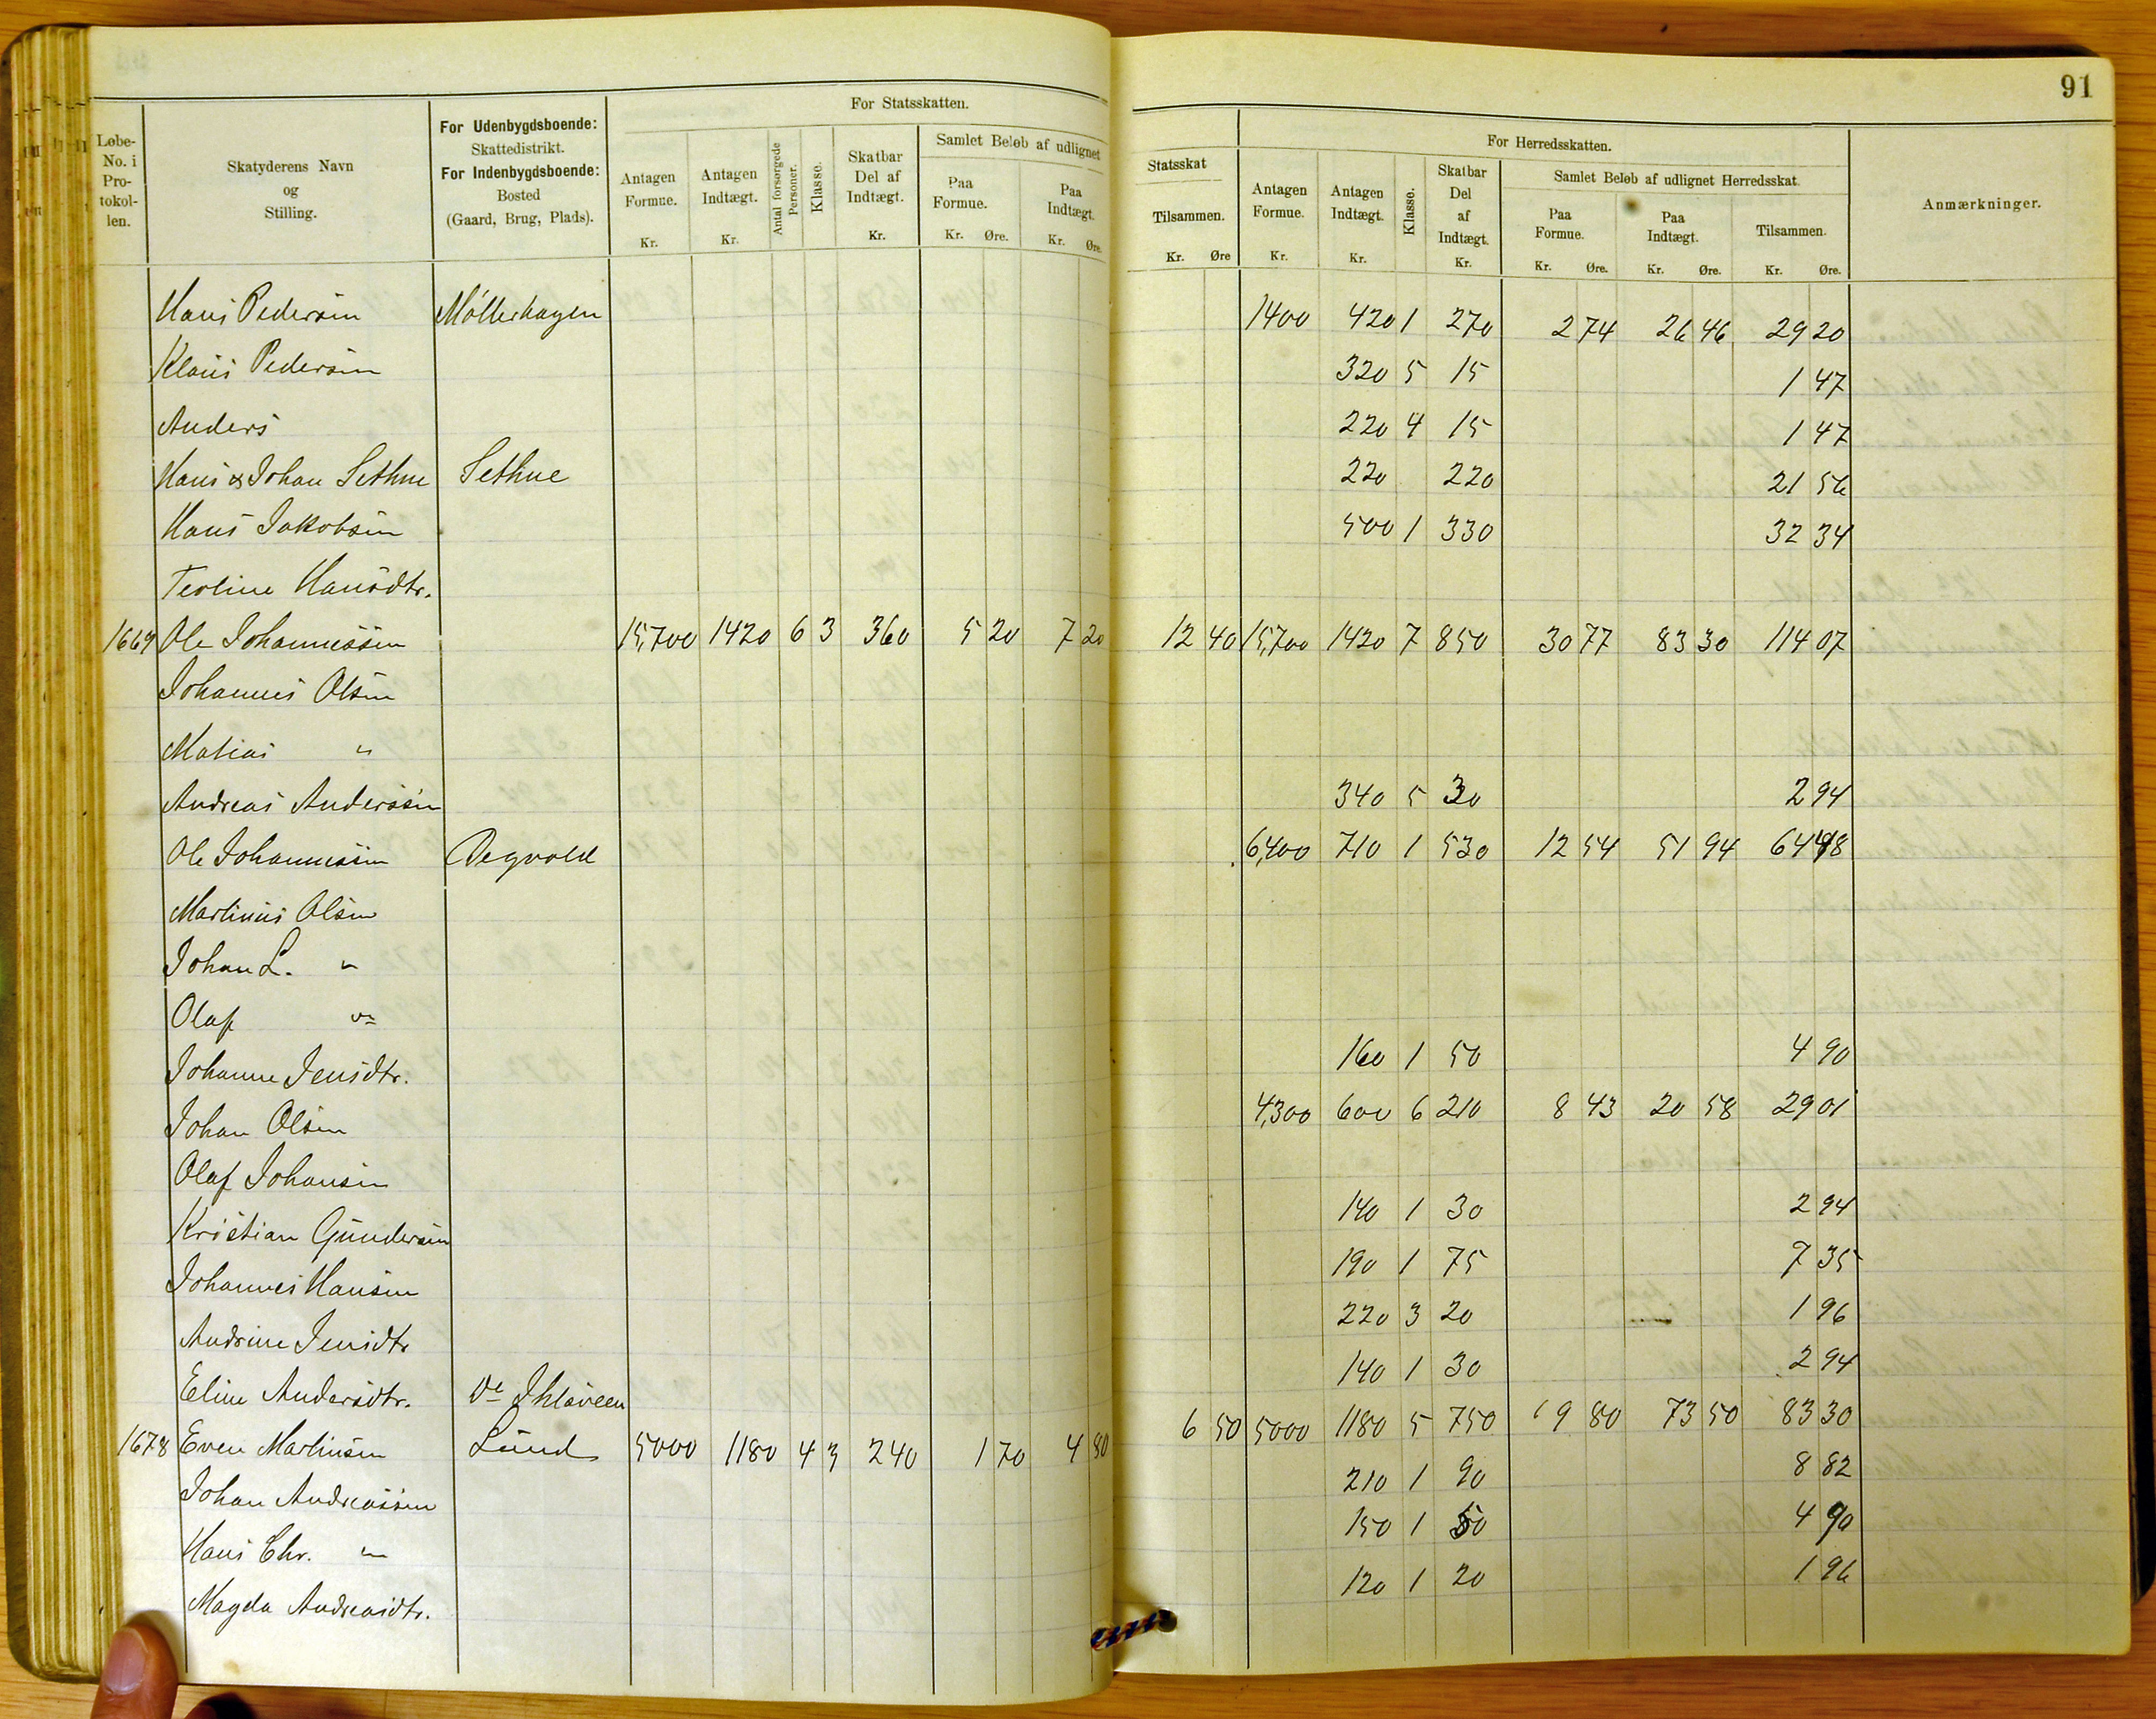 91
For Statsskatten.
For Herredsskatten.
Løbe-
No. i
Pro-
tokol-
len.
Skatyderens Navn
og
Stilling.
For Udenbygdsboende:
Skattedistrikt.
For Indenbygdsboende:
Bosted
(Gaard, Brug, Plads).
Antagen
Formue.
Kr.
Antagen
Indtægt.
Kr.
Antal forsørgede
Personer.
Klasse.
Skatbar
Del af
Indtægt.
Kr.
Samlet Beløb af udlignet
Paa
Formue.
Kr. Øre.
Paa
Indtægt.
Kr. Øre.
Statsskat
Tilsammen.
Kr. Øre
Antagen
Formue.
Kr.
Antagen
Indtægt.
Kr.
Klasse.
Skatbar
Del
af
Indtægt.
Kr.
Samlet Beløb af udlignet Herredsskat.
Paa
Formue.
Kr. Øre.
Paa
Indtægt.
Kr. Øre.
Tilsammen.
Kr. Øre.
Anmærkninger.
Hans Pedersen Möllerhagen 1400 420 1 270 2 74 26 46 29 20
Klaus Pedersen 320 5 15 1 47
Anders 220 4 15 1 47
Hans & Johan Sethne Sethne 220 220 21 56
Hans Jakobsen 500 1 330 32 34
Teoline Hansdtr.
1669 Ole Johannessen 15,700 1420 6 3 360 5 20 7 20 12 40 15,700 1420 7 850 30 77 83 30 114 07
Johannes Olsen
Matias "
Andreas Anderssen 340 5 30 2 94
Ole Johannessen Degvold 6,400 710 1 530 12 54 51 94 64 48
Martinus Olsen
Johan L. "
Olaf "
Johanne Jensdtr. 160 1 50 4 90
Johan Olsen 4,300 600 6 210 8 43 20 58 29 01
Olaf Johansen
Kristian Gundersen 140 1 30 2 94
Johannes Hansen 190 1 75 7 35
Andrine Jensdtr 220 3 20 1 96
Eline Andersdtr. 140 1 30 2 94
1678 Even Martinsen Lund 5000 1180 4 3 240 1 70 4 80 6 50 5000 1180 5 750 9 80 73 50 83 30
Johan Andreassen 210 1 90 8 82
Hans Chr. " 150 1 50 4 90
Magda Andreasdtr. 120 1 20 1 96